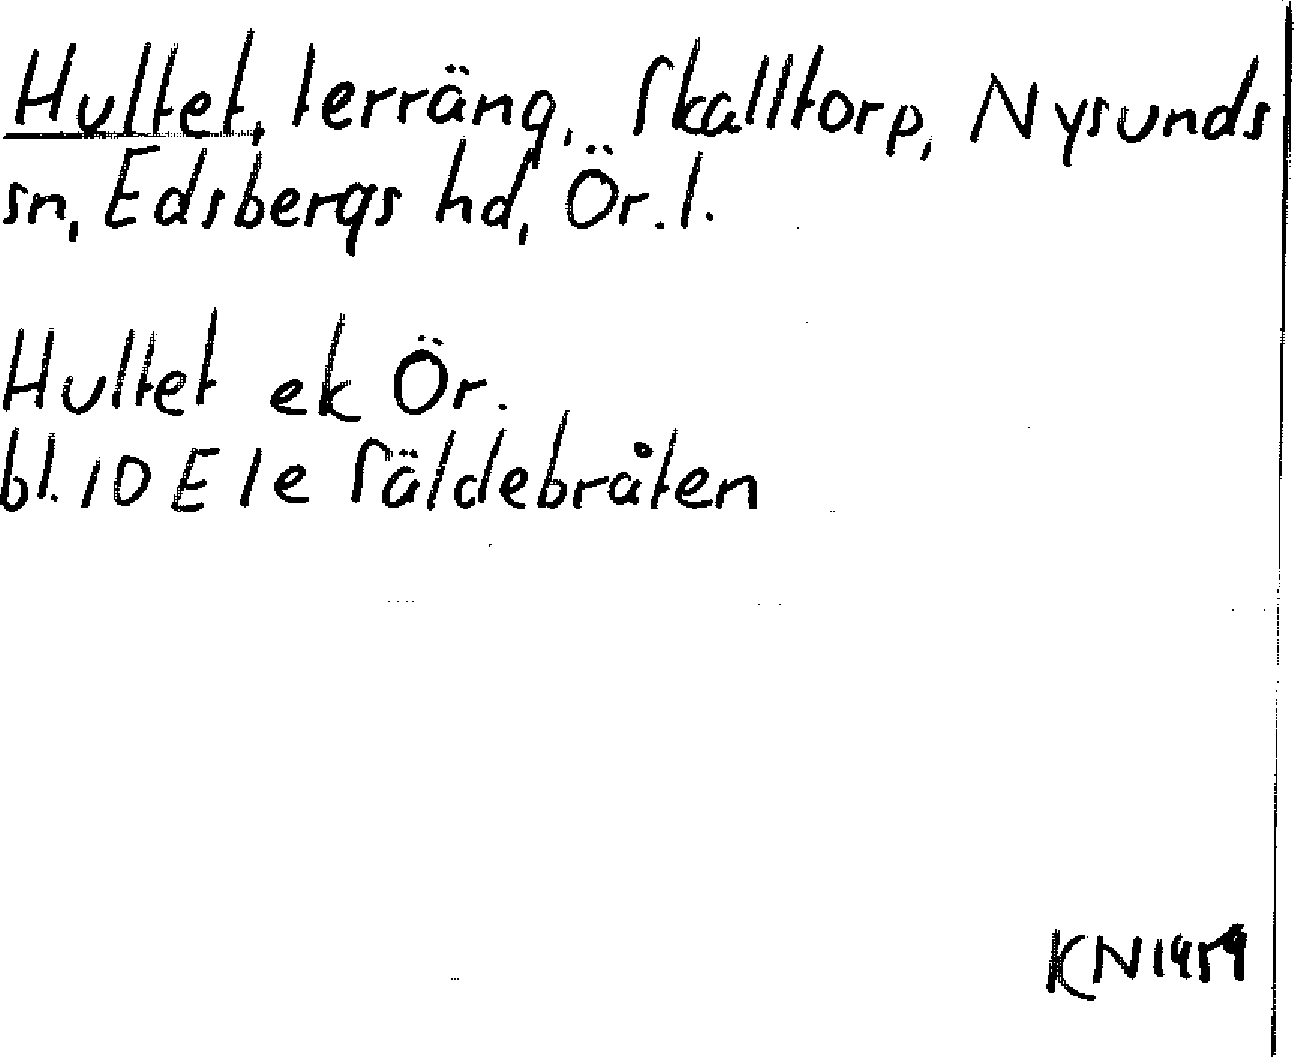 Hultet, terräng, Skalltorp, Nysunds
sn, Edsbergs hd, Ör. l.
Hultet ek Ör.
bl. 10 E 1e Säldebråten